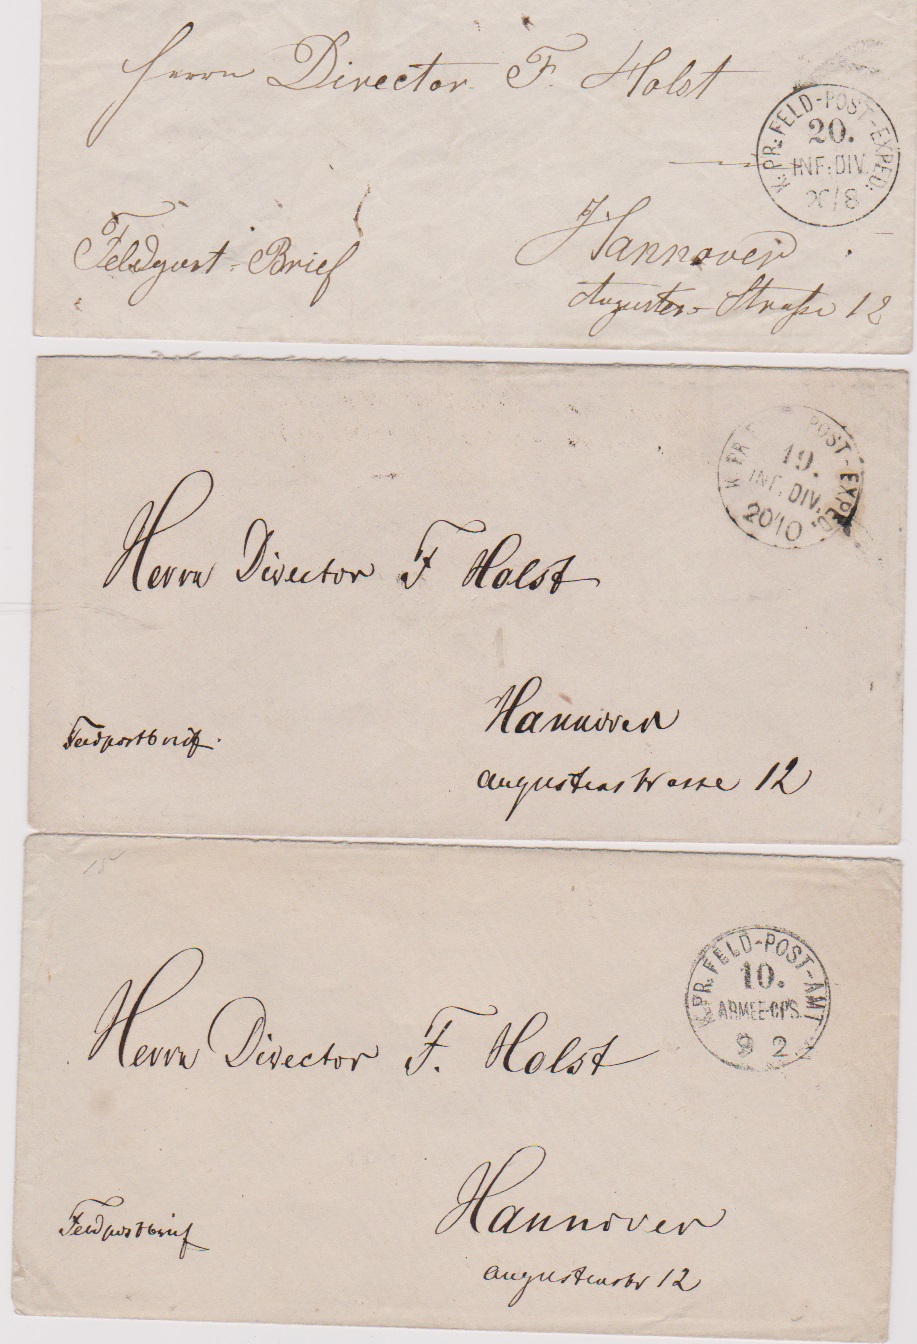 Herrn Director F. Holst
K. PR. FELD-POST-EXPED.
20.
INF. DIV.
20/8
Feldpost-Brief
Hannover
Augusten-Straße 12
K. PR. POST-EXPED.
19.
INF. DIV.
20/10
Herrn Director F Holst
Hannover
Feldpostbrief.
Augustenstrasse 12
K. PR. FELD-POST-AMT
10.
ARMEE-CPS.
9 2
Herrn Director F. Holst
Hannover
Feldpostbrief
Augustenstr 12